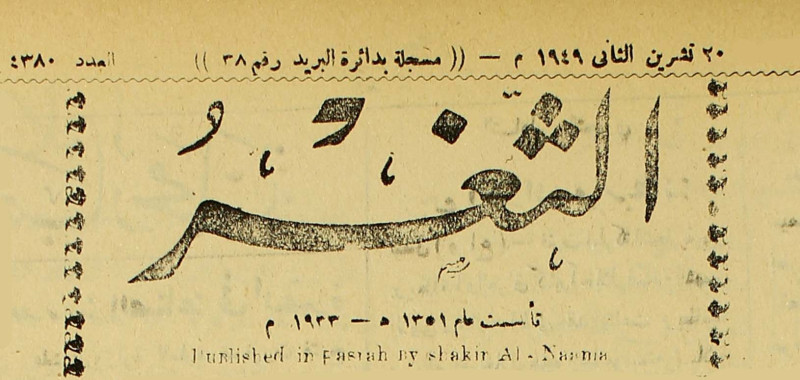 ٢٠ تشرين الثانى ١٩٤٩ م — (( مسجلة بدائرة البريد رقم ٣٨ )) العدد ٤٣٨٠
الثَّغْرُ
تأسست عام ١٣٥١ ه — ١٩٣٣ م
Published in Basrah By shakir Al - Naama